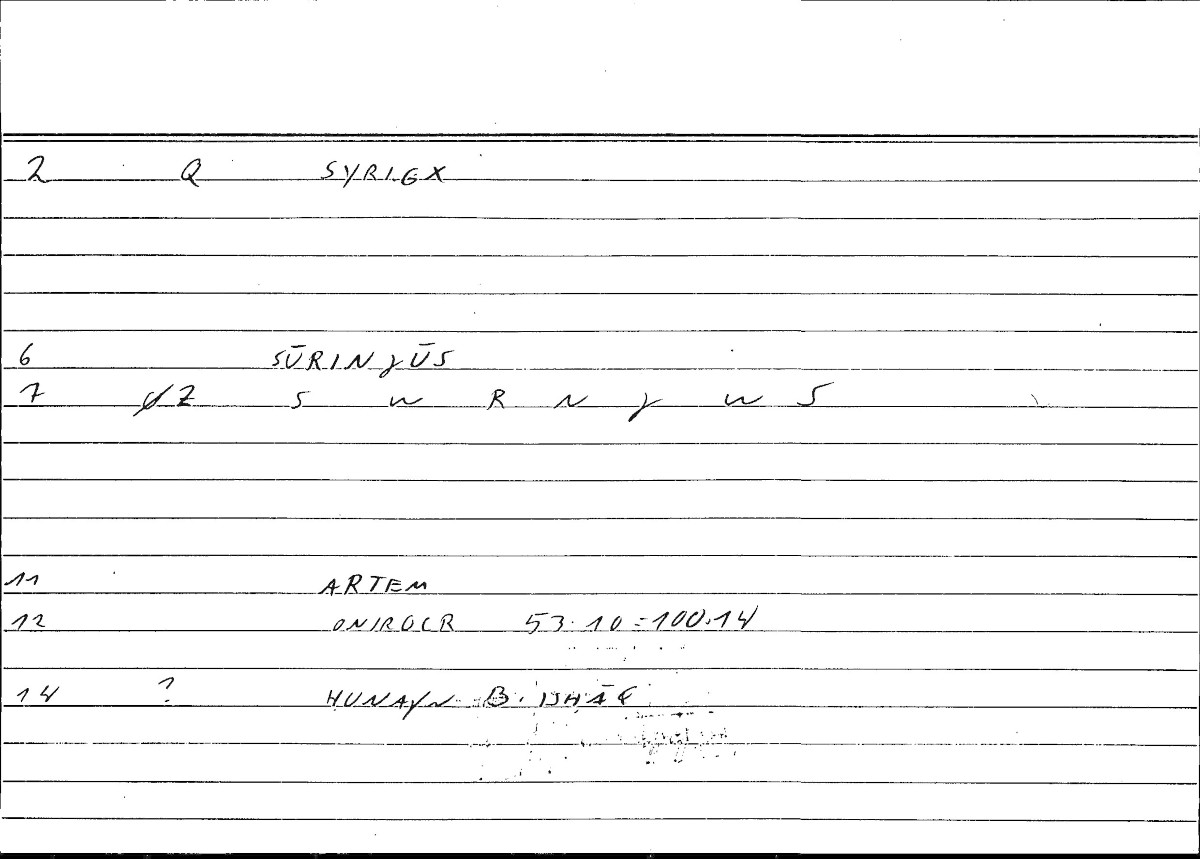 2 Q SYRIGX
6 SŪRINɣŪS
7 Z S w R N ɣ w S
11 ARTEM
12 ONIROCR 53.10=100.14
14 ? HUNAYN B. ISḤĀQ